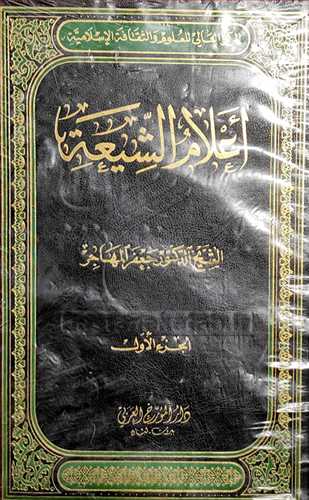 المعهد العالي للعلوم والثقافة الإسلامية
أعلام الشيعة
الشيخ الدكتور جعفر المهاجر
الجزء الأول
دار المؤرخ العربي
بيروت - لبنان